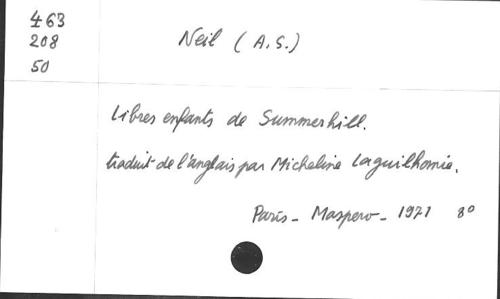 463
208
50
Neil (A.S.)
Libres enfants de Summerhill.
traduit de l'anglais par Micheline Laguilhomie.
Paris - Maspero - 1971 8°